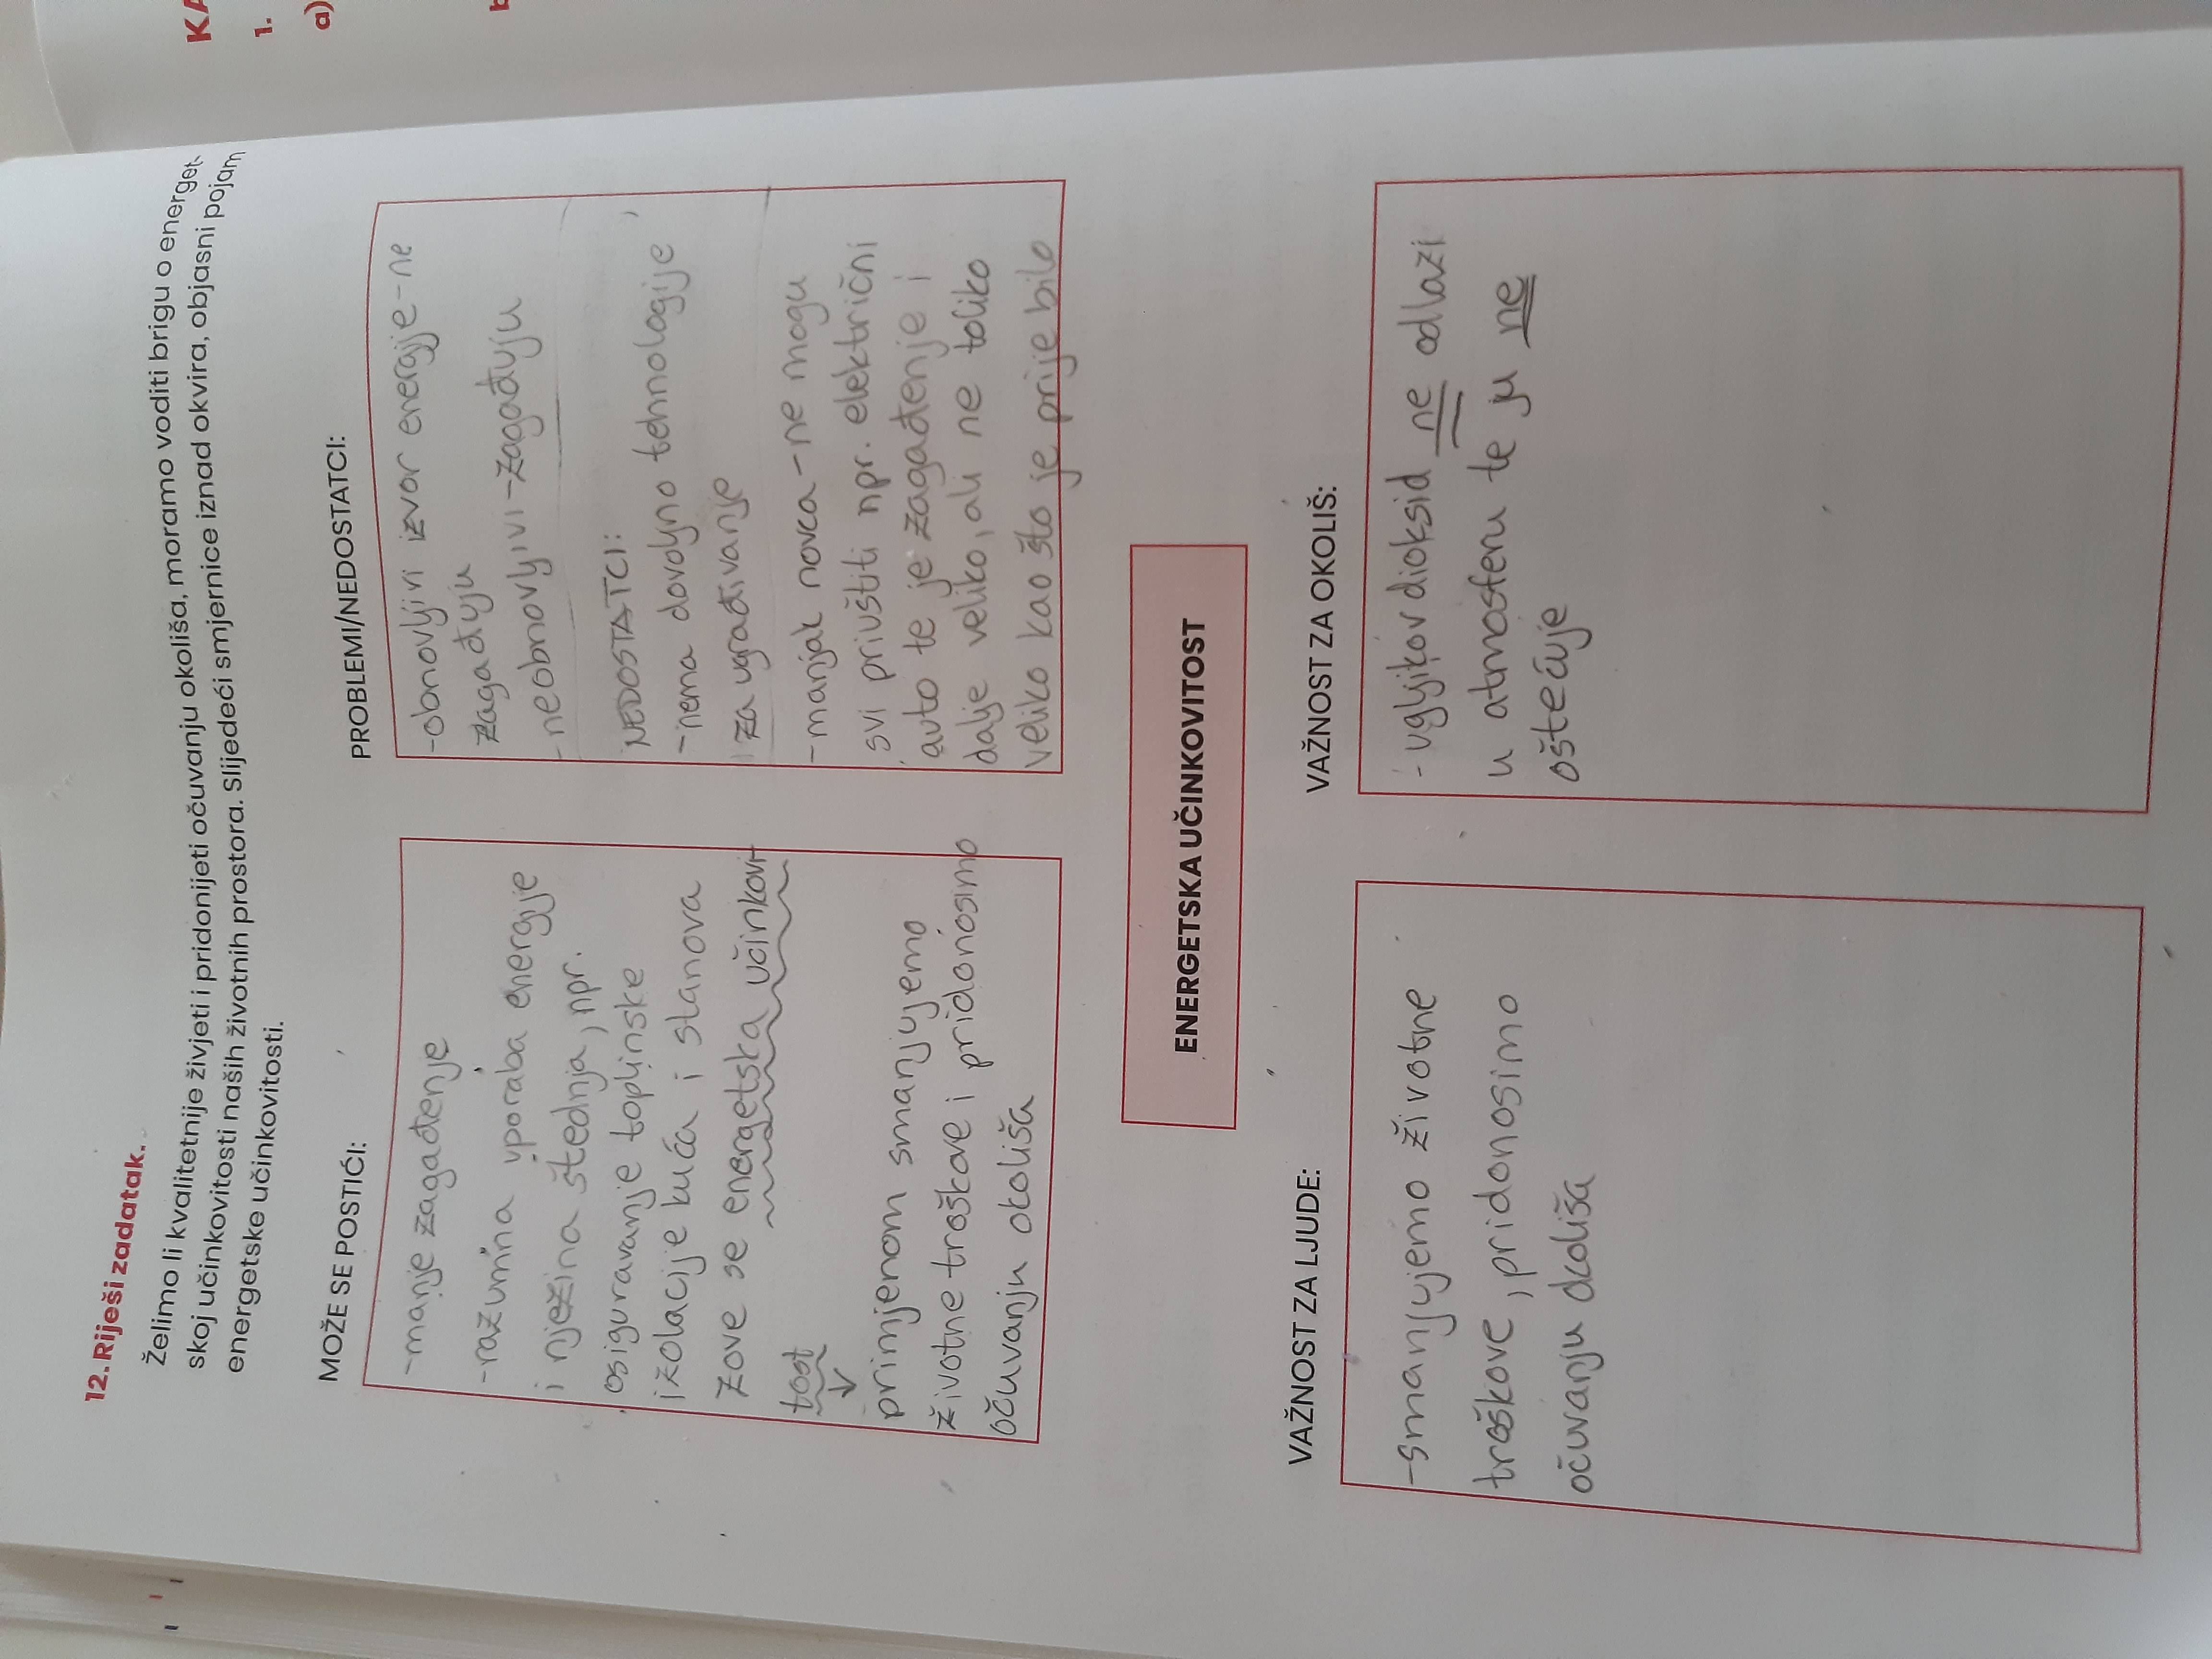 12. Riješi zadatak.
Želimo li kvalitetnije živjeti i pridonijeti očuvanju okoliša, moramo voditi brigu o energet-
skoj učinkovitosti naših životnih prostora. Slijedeći smjernice iznad okvira, objasni pojam
energetske učinkovitosti.
MOŽE SE POSTIĆI:
-manje zagađenje
-razumna uporaba energije
i nježina štednja, npr.
osiguravanje toplinske
izolacije kuća i stanova
zove se energetska učinkovi-
tost
primjenom smanjujemo
životne troškove i pridonosimo
očuvanju okoliša
PROBLEMI/NEDOSTATCI:
-obnovljivi izvor energije-ne
zagađuju
-neobnovljivi-zagađuju
NEDOSTATCI:
-nema dovoljno tehnologije
za ugrađivanje
-manjak novca-ne mogu
svi priuštiti npr. električni
auto te je zagađenje i
dalje veliko, ali ne toliko
veliko kao što je prije bilo
ENERGETSKA UČINKOVITOST
VAŽNOST ZA LJUDE:
-smanjujemo životne
troškove, pridonosimo
očuvanju okoliša
VAŽNOST ZA OKOLIŠ:
-ugljikov dioksid ne odlazi
u atmosferu te ju ne
oštećuje
KA
1.
a)